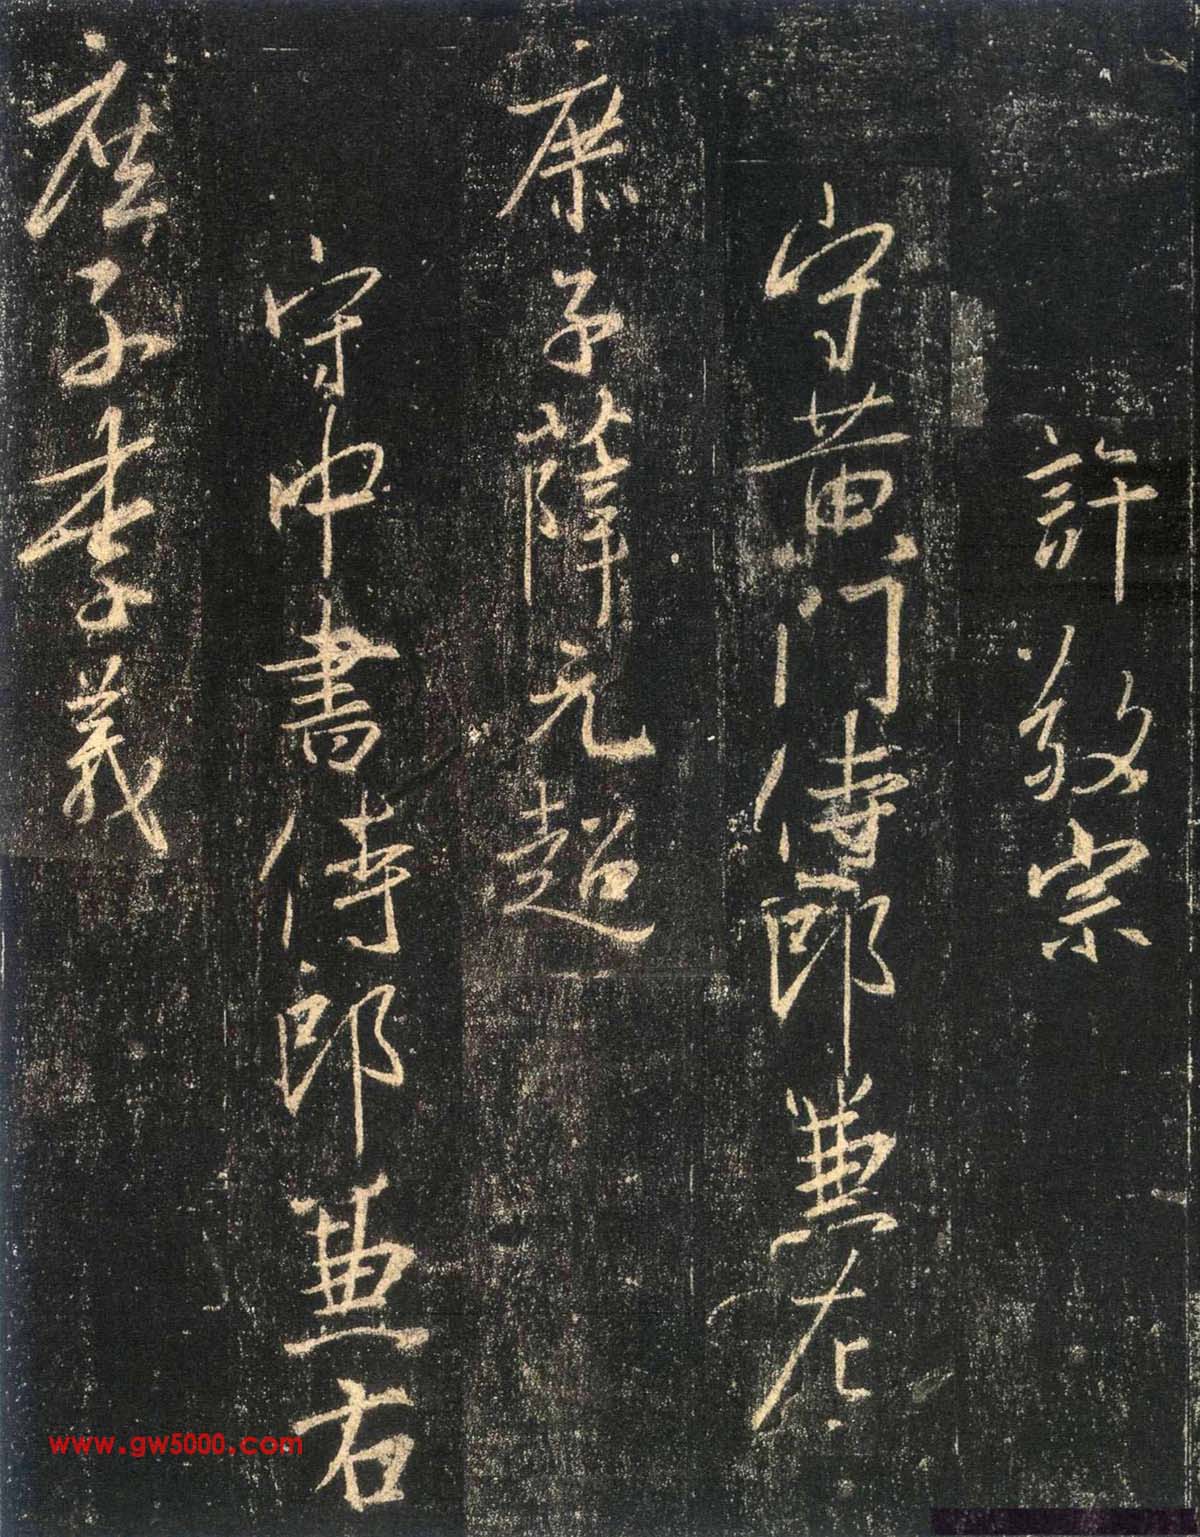 許敬宗
守黄門侍郎兼左
庶子薛元超
守中書侍郎兼右
庶子李義
www.gw5000.com